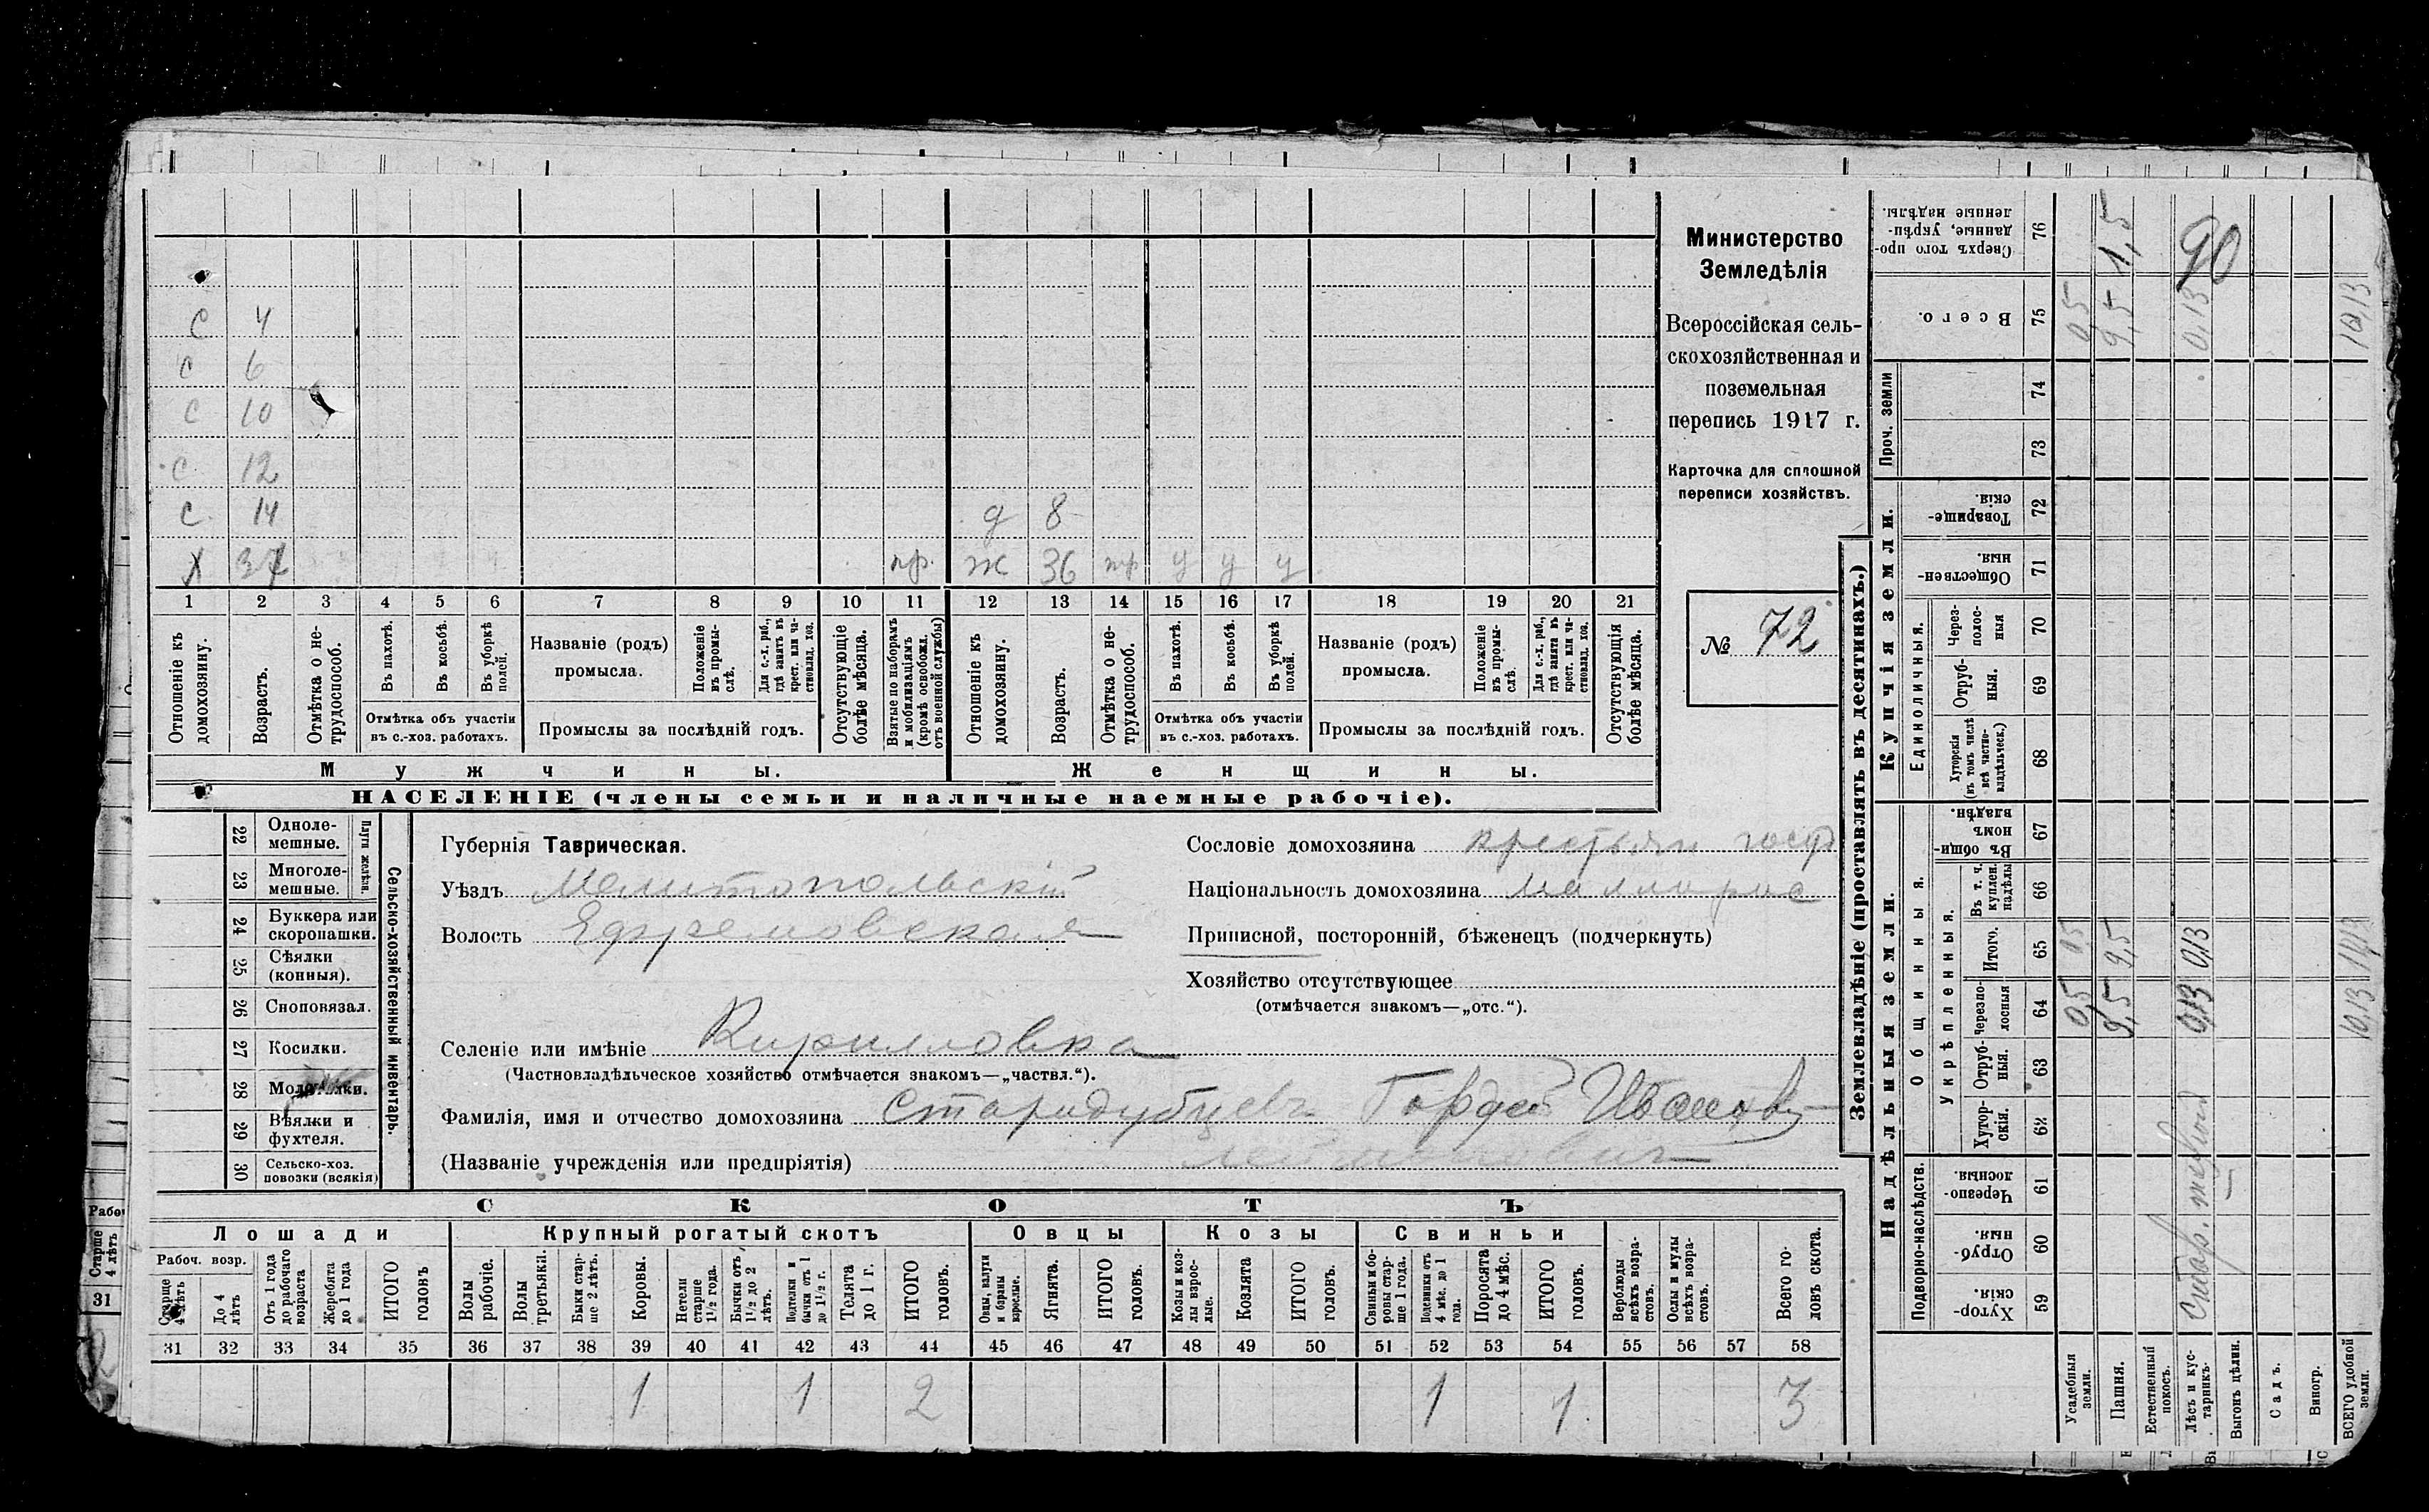 Министерство
Земледѣлія
Всероссійская сель-
скохозяйственная и
поземельная
перепись 1917 г.
Карточка для сплошной
переписи хозяйствъ.
№ 72
С 4
С 6
С 10
С 12
С 14 д 8
Х 37 пр. ж 36 пр у у у
1 2 3 4 5 6 7 8 9 10 11 12 13 14 15 16 17 18 19 20 21
Отношеніе къ домохозяину.
Возрастъ.
Отмѣтка о не-трудоспособ.
Въ пахотѣ.
Въ косьбѣ.
Въ уборкѣ полей.
Отмѣтка объ участіи
въ с.-хоз. работахъ.
Названіе (родъ)
промысла.
Положеніе въ промы-слѣ.
Для с.-х. раб., гдѣ занятъ въ крест. или ча-стновлад. хоз.
Промыслы за послѣдній годъ.
Отсутствующіе болѣе мѣсяца.
Взятые по наборамъ и мобилизаціямъ (кромѣ освобожд. отъ военной службы)
Отношеніе къ домохозяину.
Возрастъ.
Отмѣтка о не-трудоспособ.
Въ пахотѣ.
Въ косьбѣ.
Въ уборкѣ полей.
Отмѣтка объ участіи
въ с.-хоз. работахъ.
Названіе (родъ)
промысла.
Положеніе въ промы-слѣ.
Для с.-х. раб., гдѣ занята въ крест. или ча-стновлад. хоз.
Промыслы за послѣдній годъ.
Отсутствующія болѣе мѣсяца.
Мужчины. Женщины.
НАСЕЛЕНІЕ (члены семьи и наличные наемные рабочіе).
Сельско-хозяйственный инвентарь.
Плуги желѣзн.
22 Одноле-мешные.
23 Многоле-мешные.
24 Буккера или скоропашки.
25 Сѣялки (конныя).
26 Сноповязал.
27 Косилки.
28 Молотилки.
29 Вѣялки и фухтеля.
30 Сельско-хоз. повозки (всякія)
Губернія Таврическая.
Уѣздъ Мелитопольскій
Волость Ефремовская
Селеніе или имѣніе Кирилловка
(Частновладѣльческое хозяйство отмѣчается знакомъ—„частвл.“).
Фамилія, имя и отчество домохозяина Стародубцевъ Гордей Ивановъ
(Названіе учрежденія или предпріятія)
Сословіе домохозяина крестьян госуд
Національность домохозяина малорос
Приписной, посторонній, бѣженецъ (подчеркнуть)
Хозяйство отсутствующее
(отмѣчается знакомъ—„отс.“).
СКОТЪ
Лошади Крупный рогатый скотъ Овцы Козы Свиньи
Рабоч. возр.
Старше 4 лѣтъ
До 4 лѣтъ
Отъ 1 года до рабочаго возраста
Жеребята до 1 года
ИТОГО головъ
Волы рабочіе.
Волы третьяки.
Быки стар-ше 2 лѣтъ.
Коровы.
Нетели старше 1½ года.
Бычки отъ 1½ до 2 лѣтъ.
Подтелки и бычки отъ 1 до 1½ г.
Телята до 1 г.
ИТОГО головъ.
Овцы, валухи и бараны взрослые.
Ягнята.
ИТОГО головъ.
Козы и коз-лы взрос-лые.
Козлята
ИТОГО головъ.
Свиньи и бо-ровы стар-ше 1 года.
Подсвинки отъ 4 мѣс. до 1 года.
Поросята до 4 мѣс.
ИТОГО головъ.
Верблюды всѣхъ возра-стовъ.
Ослы и мулы всѣхъ возра-стовъ.
Всего го-ловъ скота.
31 32 33 34 35 36 37 38 39 40 41 42 43 44 45 46 47 48 49 50 51 52 53 54 55 56 57 58
1 1 2 1 1 3
Землевладѣніе (проставлять въ десятинахъ.)
Надѣльныя земли. Купчія земли. Проч. земли
Подворно-наслѣдств. Общинныя. Единоличныя.
Укрѣпленныя.
Хутор-скія. 59
Отруб-ныя. 60
Черезпо-лосныя 61
Хутор-скія. 62
Отруб-ныя. 63
Черезпо-лосныя 64
Итого. 65
Въ т. ч. куплен. надѣлы 66
Въ общин-номъ владѣн. 67
Хуторскія (въ томъ числѣ всѣ частно-владѣльческ.) 68
Отруб-ныя. 69
Через-полос-ныя 70
Обществен-ныя. 71
Товарище-скія. 72
73
74
Всего. 75
Сверхъ того про-данные, укрѣп-ленные надѣлы. 76
Усадебныя земли. 0,5 0,5 0,5
Пашня. 9,5 9,5 9,5 1,5
Естественный покосъ.
Лѣсъ и кус-тарникъ. 0,13 0,13 0,13
90
Выгонъ цѣлин.
Садъ.
Виногр.
ВСЕГО удобной земли. 10,13 10,13 10,13
Рабоч
Старше 4 лѣтъ
31